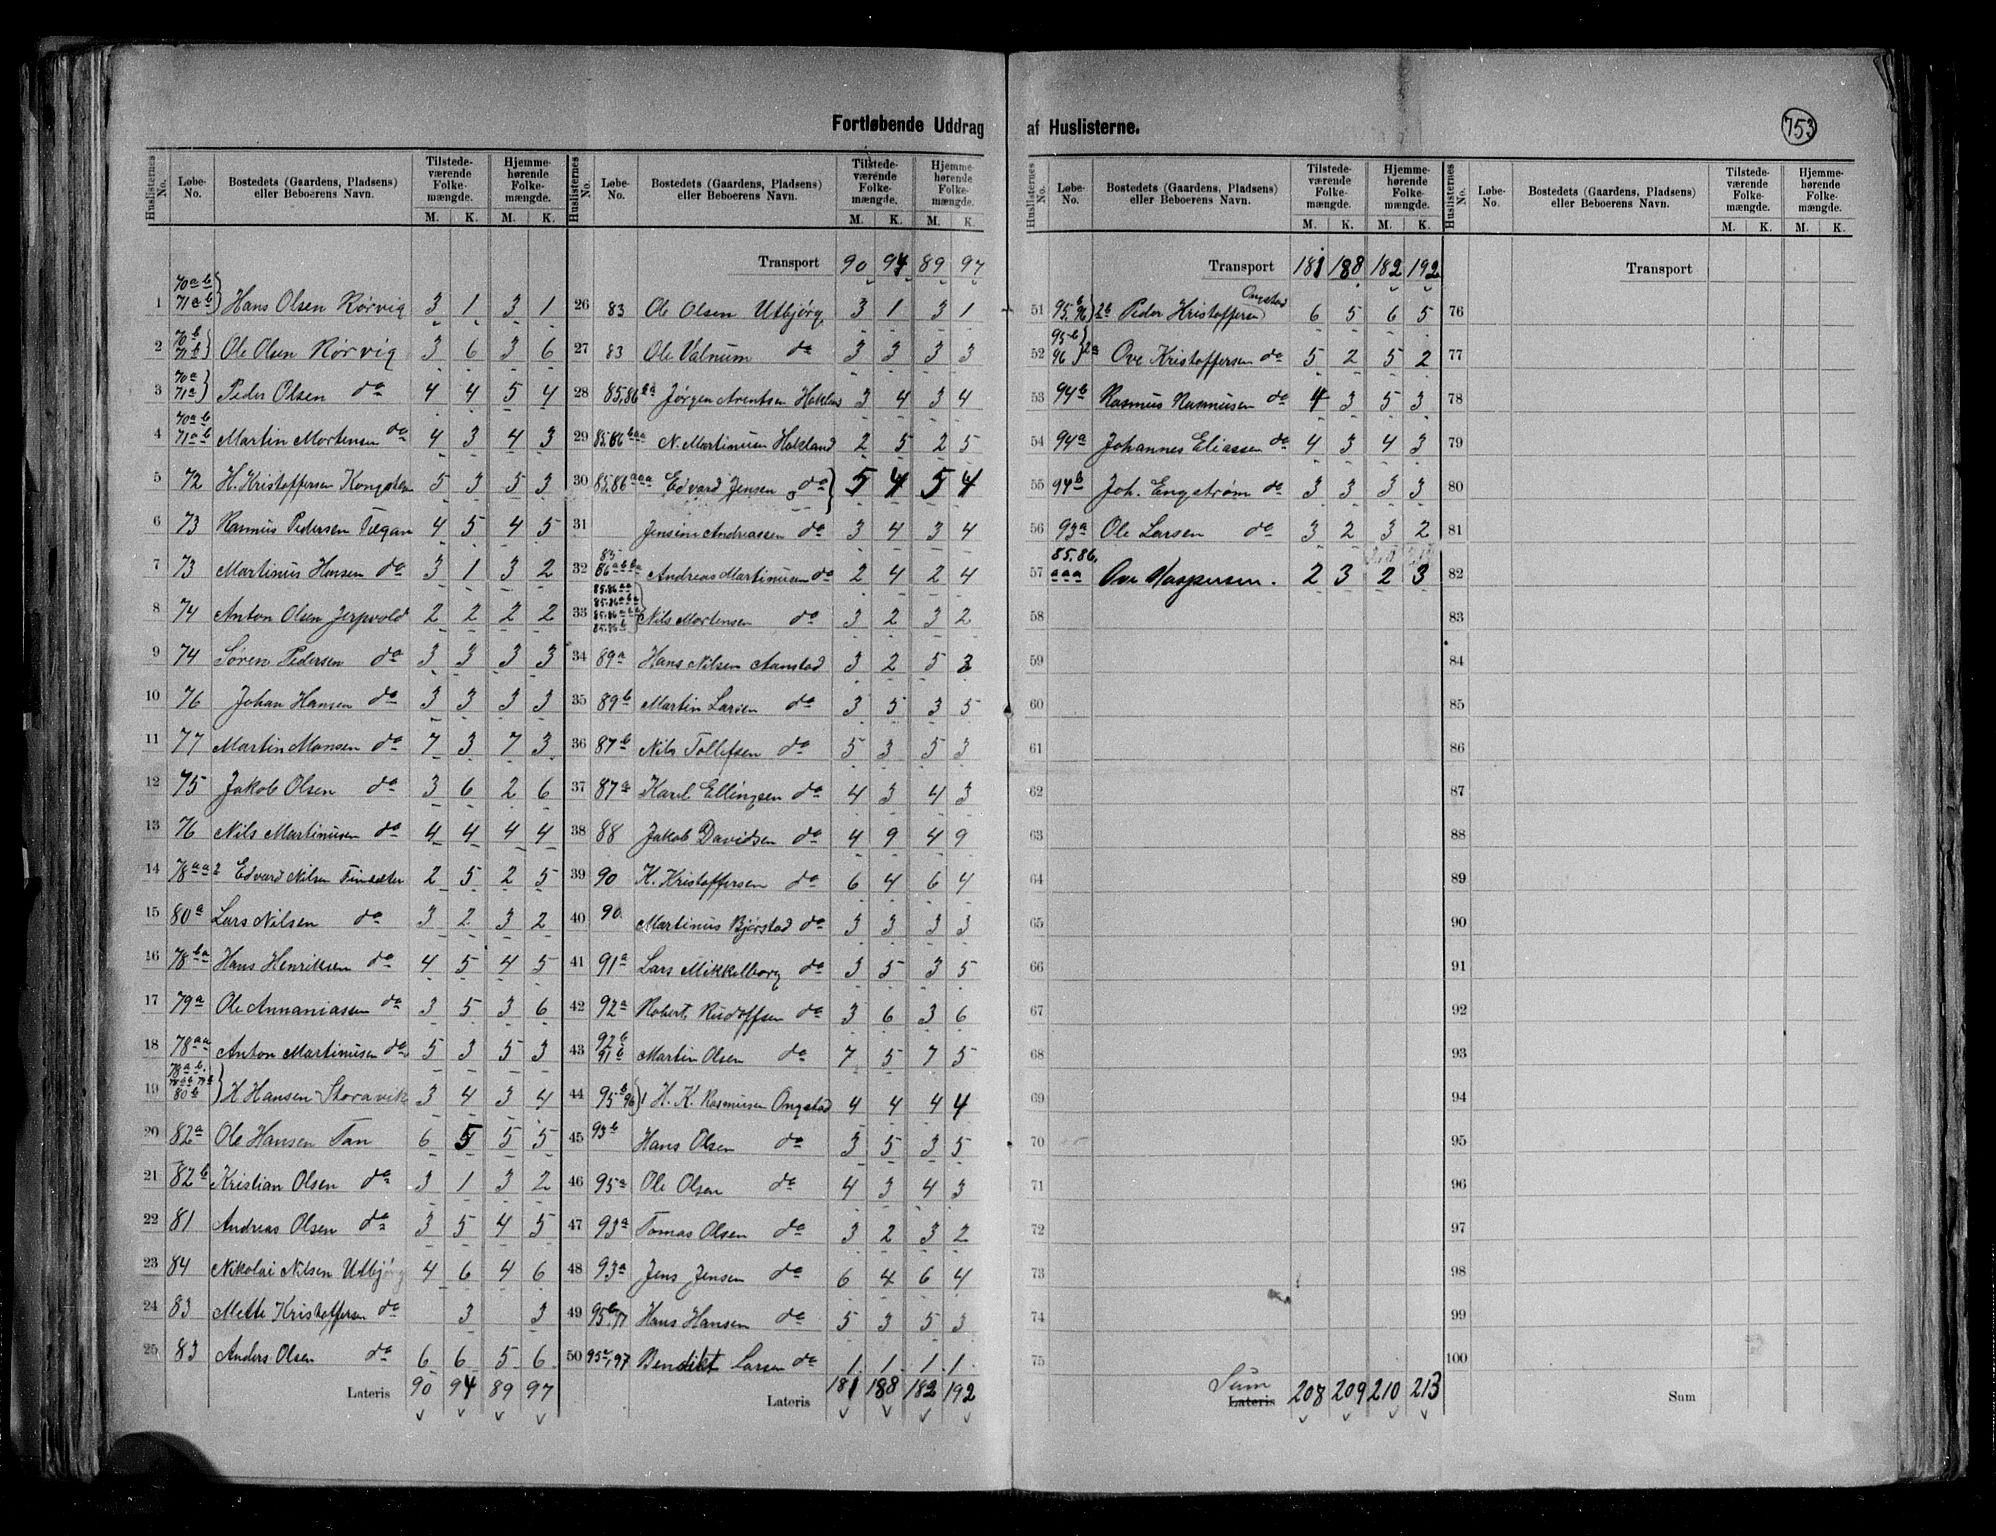 Fortløbende Uddrag af Huslisterne.
753
Huslisternes No. Løbe-No. Bostedets (Gaardens, Pladsens) eller Beboerens Navn. Tilstedeværende Folkemængde. M. K. Hjemmehørende Folkemængde. M. K.
1 70 a b 71 a b } Hans Olsen Rørvig 3 1 3 1
2 70 b 71 b } Ole Olsen Rørvig 3 6 3 6
3 70 a 71 a } Peder Olsen do 4 4 5 4
4 70 a b 71 a b Martin Mortensen do 4 3 4 3
5 72 H. Kristoffersen Kongsten 5 3 5 3
6 73 Rasmus Pedersen Tægan 4 5 4 5
7 73 Martinus Hansen do 3 1 3 2
8 74 Anton Olsen Jerpvold 2 2 2 2
9 74 Søren Pedersen do 3 3 3 3
10 76 Johan Hansen do 3 3 3 3
11 77 Martin Monsen do 7 3 7 3
12 75 Jakob Olsen do 3 6 2 6
13 76 Nils Martinusen do 4 4 4 4
14 78 a a 2 Edvard Nilsen 2 5 2 5
15 80 a Lars Nilsen do 3 2 3 2
16 78 b a Hans Henriksen do 4 5 4 5
17 79 a Ole Annaniassen do 3 5 3 6
18 78 a a Anton Martinusen do 5 3 5 3
19 80 b } H Hansen Storavik 3 4 3 4
20 82 a Ole Hansen Tan 6 5 5 5
21 82 b Kristian Olsen do 3 1 3 2
22 81 Andreas Olsen do 3 5 4 5
23 84 Nikolai Nilsen Utbjørg 4 6 4 6
24 83 Mette Kristoffersen do 3 3
25 83 Anders Olsen do 6 6 5 6
Lateris 90 94 89 97
Huslisternes No. Løbe-No. Bostedets (Gaardens, Pladsens) eller Beboerens Navn. Tilstedeværende Folkemængde. M. K. Hjemmehørende Folkemængde. M. K.
Transport 90 94 89 97
26 83 Ole Olsen Utbjørg 3 1 3 1
27 83 Ole Valnum do 3 3 3 3
28 85,86 Jørgen Arentsen 3 4 3 4
29 85.86 b a a N. Martinusen Hakland 2 5 2 5
30 85,86 a a a Edvard Jensen do } 5 4 5 4
31 Jensine Andreassen do 3 4 3 4
32 85 86 a b b a Andreas Martinusen do 2 4 2 4
33 85.86 a a 85.86 85.86 85.86 b } Nils Mortensen do 3 2 3 2
34 89 a Hans Nilsen Aanstad 3 2 5 3
35 89 b Martin Larsen do 3 5 3 5
36 87 b Nils Tollefsen do 5 3 5 3
37 87 a Karl Ellingsen do 4 3 4 3
38 88 Jakob Davidsen do 4 9 4 9
39 90 K. Kristoffersen do 6 4 6 4
40 90. Martinus Bjørstad do 3 3 3 3
41 91 a Lars Mikkelborg do 3 5 3 5
42 92 a Robert Rudolfsen do 3 6 3 6
43 92 b 91 b Martin Olsen do 7 5 7 5
44 95 b 96 } 1 H. K. Rasmusen Ongstad 4 4 4 4
45 93 b Hans Olsen do 3 5 3 5
46 95 a Ole Olsen do 4 3 4 3
47 93 a Tomas Olsen do 3 2 3 2
48 93 a Jens Jensen do 6 4 6 4
49 95 b, 97 Hans Hansen do 5 3 5 3
50 95 c, 97 Bendikt Larsen do 1 1 1 1
Lateris 181 188 182 192
Huslisternes No. Løbe-No. Bostedets (Gaardens, Pladsens) eller Beboerens Navn. Tilstedeværende Folkemængde. M. K. Hjemmehørende Folkemængde. M. K.
Transport 181 188 182 192
51 95 b 96 } 2 b Peder Kristoffersen Ongstad 6 5 6 5
52 95 b 96 } 2 a Ove Kristoffersen do 5 2 5 2
53 94 b Rasmus Rasmusen do 4 3 5 3
54 94 a Johannes Eliassen do 4 3 4 3
55 94 b Joh. Engstrøm do 3 3 3 3
56 93 a Ole Larsen do 3 2 3 2
57 85.86. a a a Ove Kaspersen. 2 3 2 3
58
59
60
61
62
63
64
65
66
67
68
69
70
71
72
73
74
75
Sum Lateris 208 209 210 213
Huslisternes No. Løbe-No. Bostedets (Gaardens, Pladsens) eller Beboerens Navn. Tilstedeværende Folkemængde. M. K. Hjemmehørende Folkemængde. M. K.
Transport
76
77
78
79
80
81
82
83
84
85
86
87
88
89
90
91
92
93
94
95
96
97
98
99
100
Sum